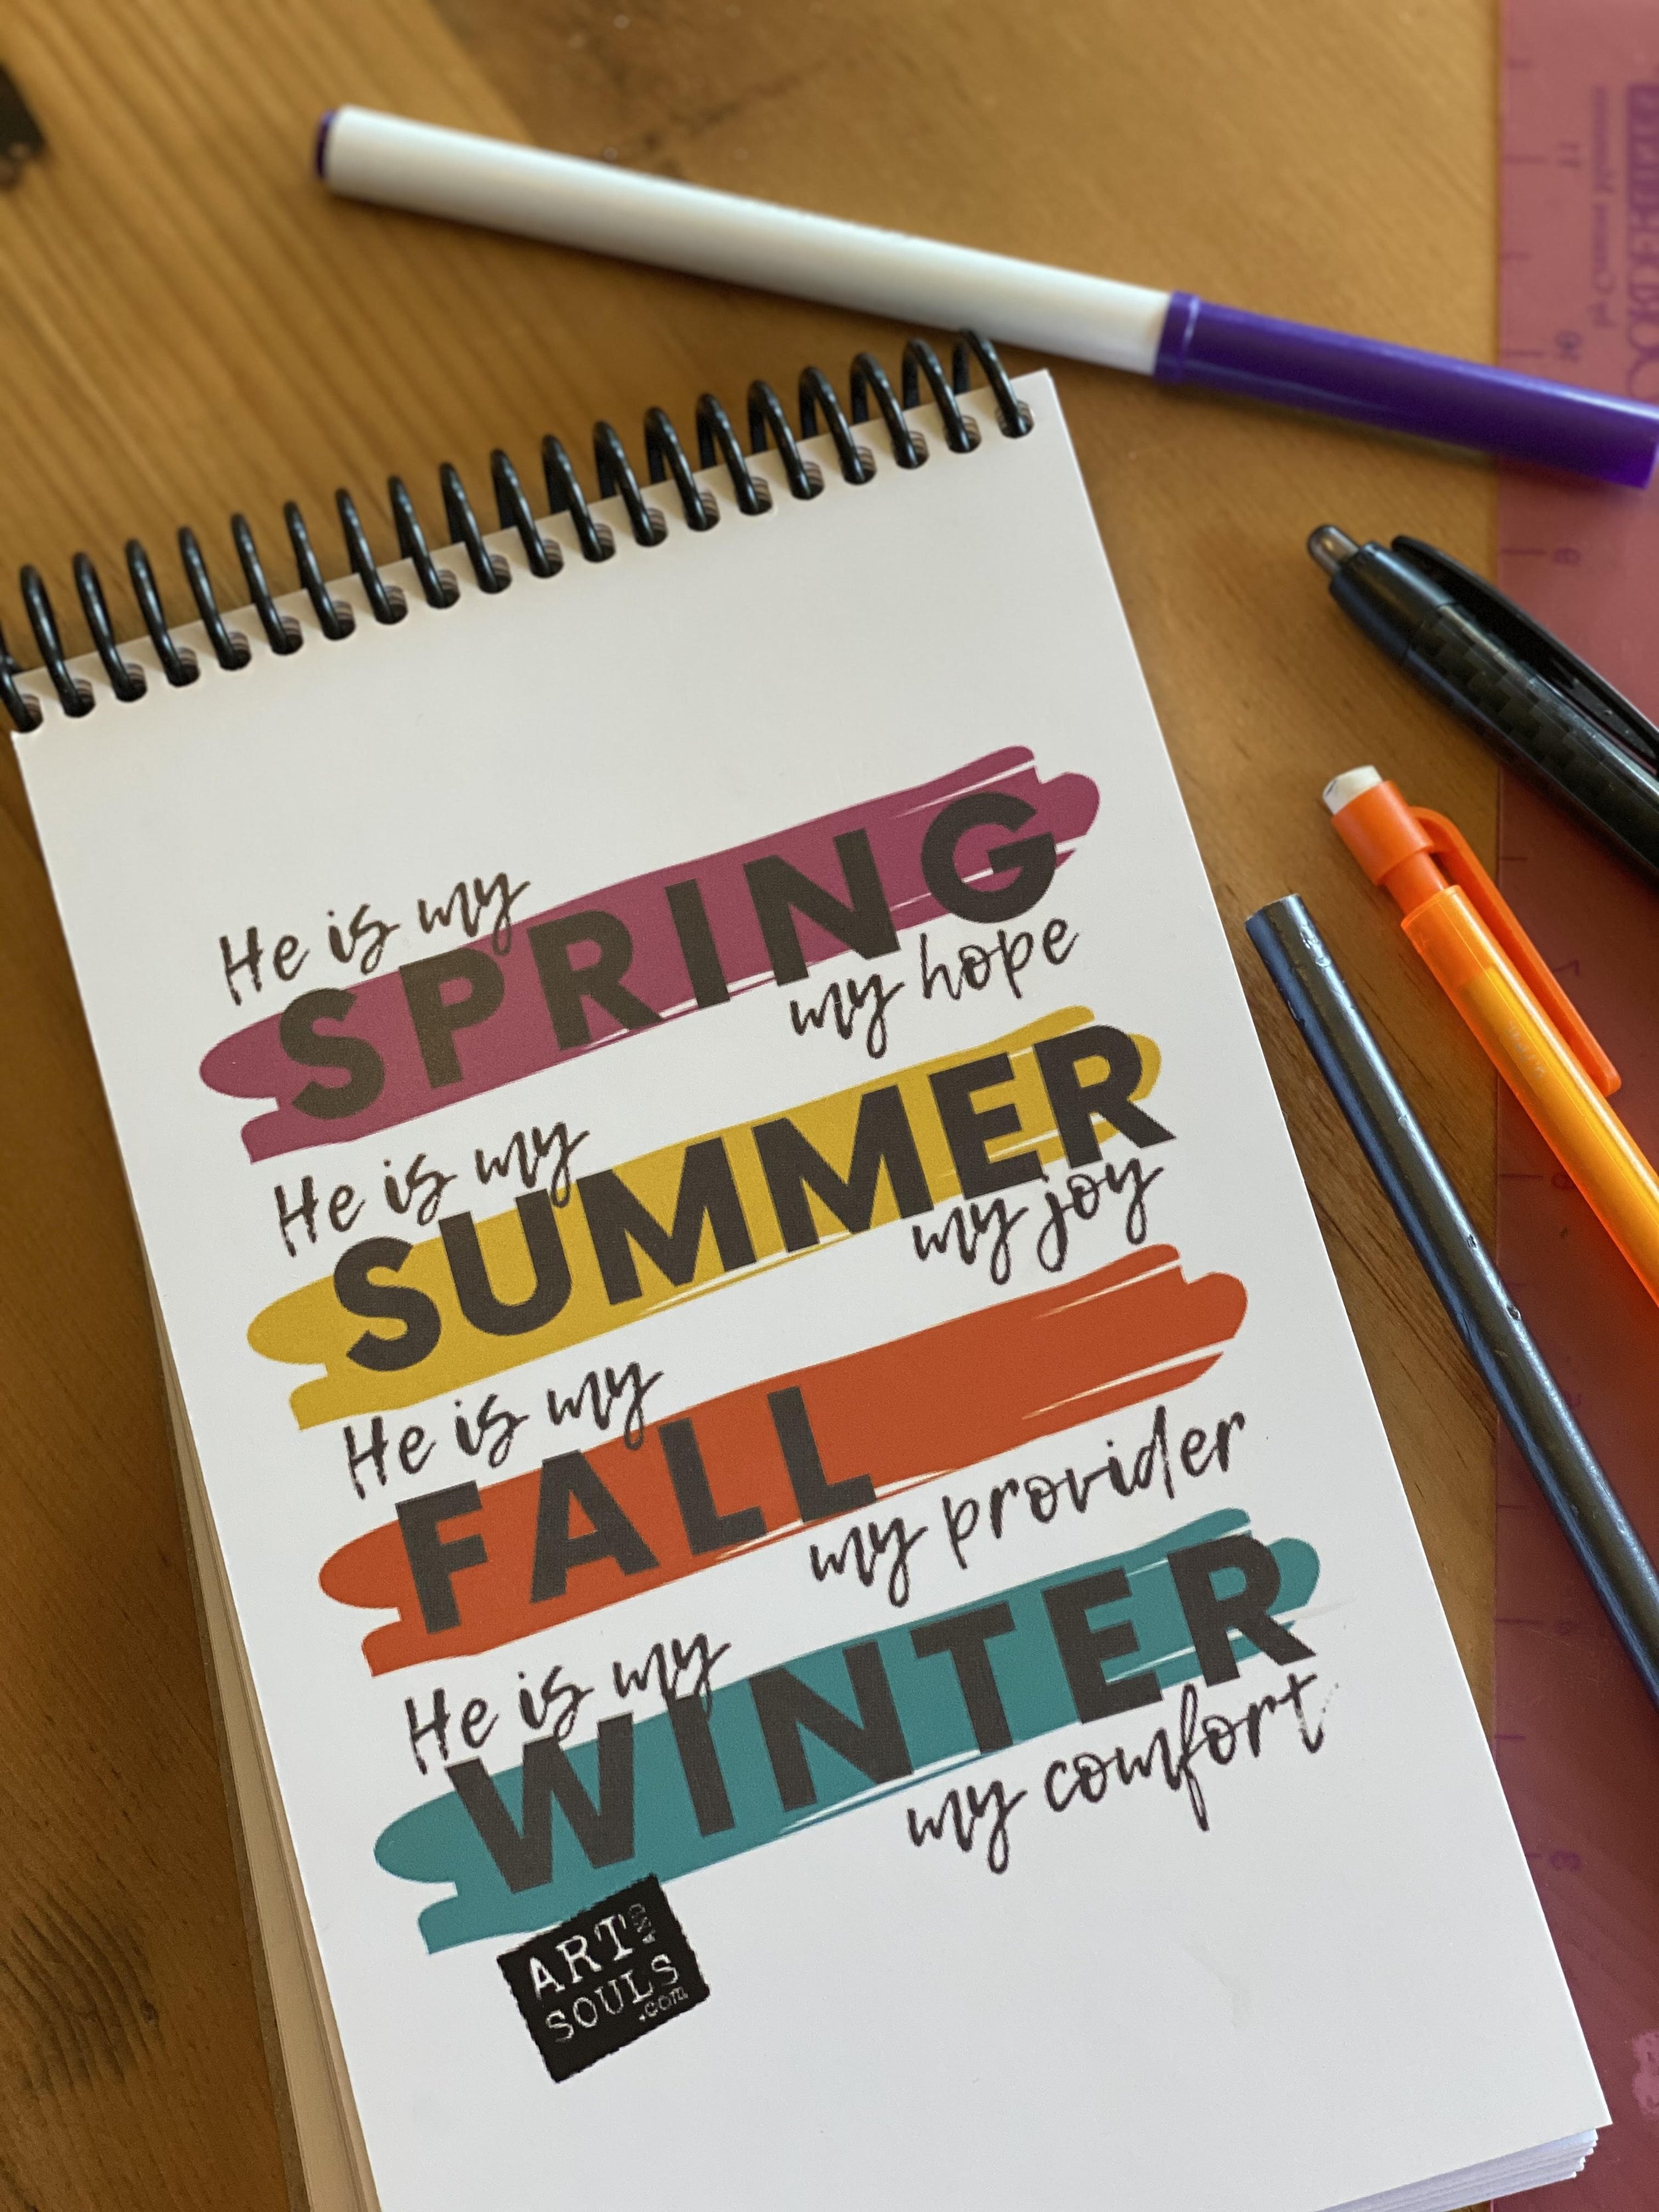 He is my
SPRING
my hope
He is my
SUMMER
my joy
He is my
FALL
my provider
He is my
WINTER
my comfort
ART AND
SOULS
.com
11
10
9